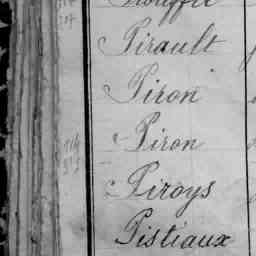 Pirault
Piron
Piron
Piroys
Pistiaux